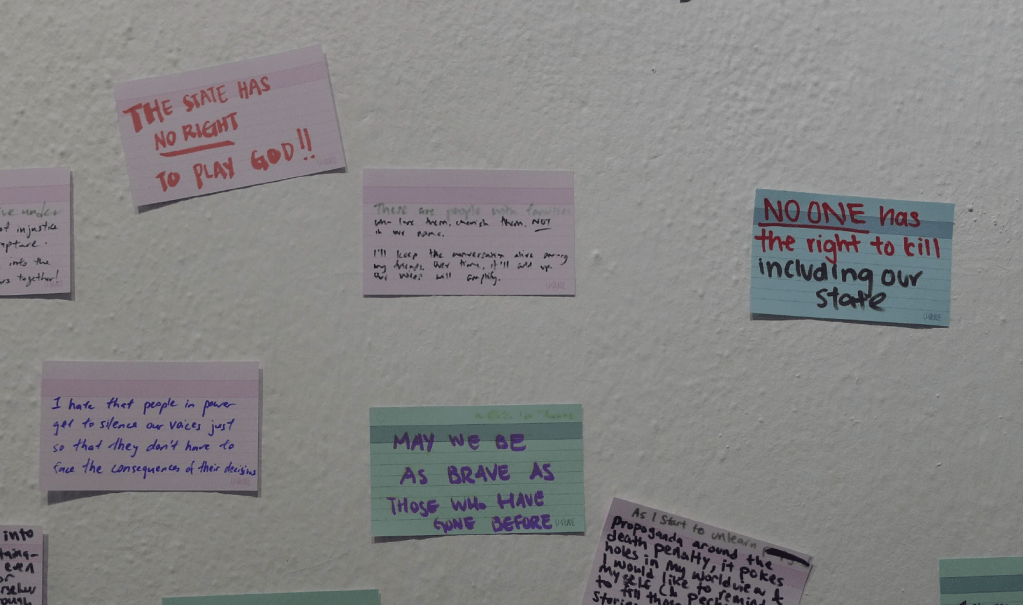 THE STATE HAS
NO RIGHT
TO PLAY GOD!!
under
injustice
into the
together!
These are people with families
who love them, cherish them. NOT
in our name.
I'll keep the conversation alive among
my friends. Over time, it'll add up.
Our voices will amplify.
NO ONE has
the right to kill
including our
state
I hate that people in power
get to silence our voices just
so that they don't have to
face the consequences of their decisions
MAY WE BE
AS BRAVE AS
THOSE WHO HAVE
GONE BEFORE
into
even
or
As I start to unlearn
propaganda around the
death penalty, it pokes
holes in my worldview &
I would like to remind
myself
to fill those